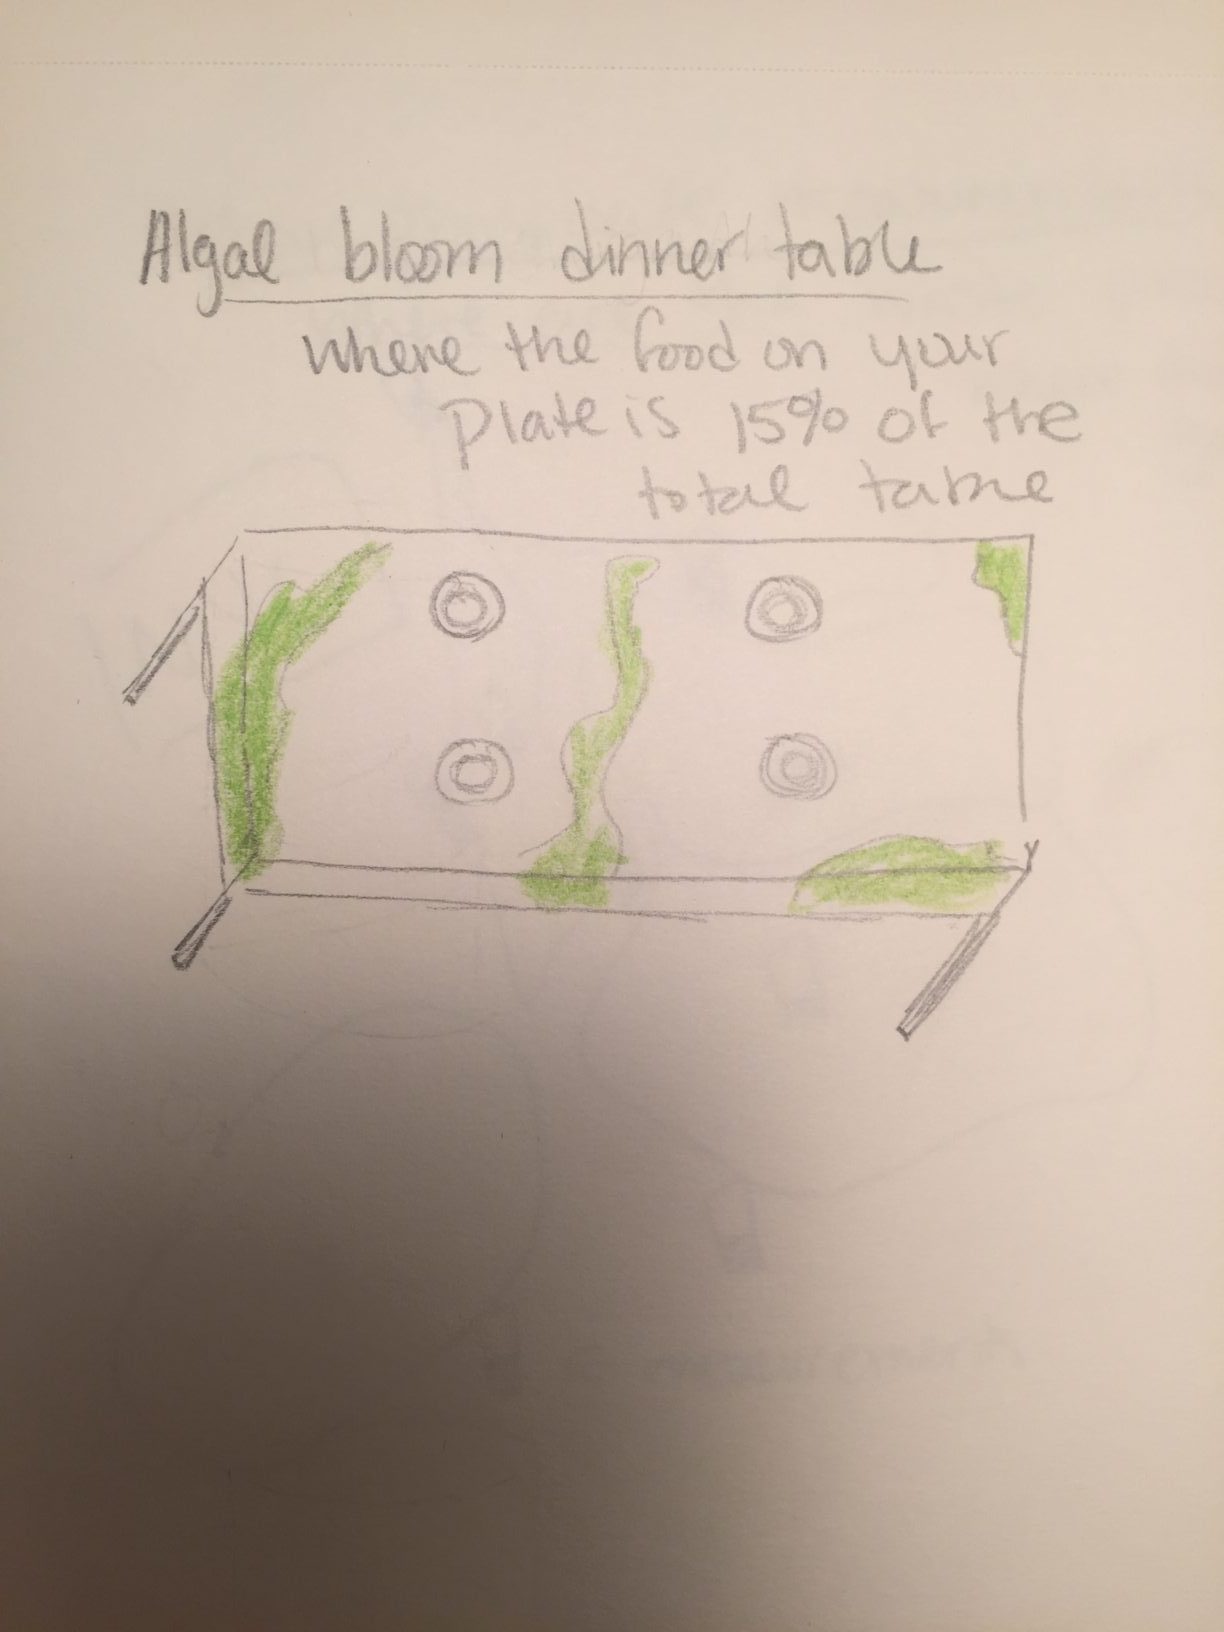 Algae bloom dinner table
where the food on your
plate is 15% of the
total table